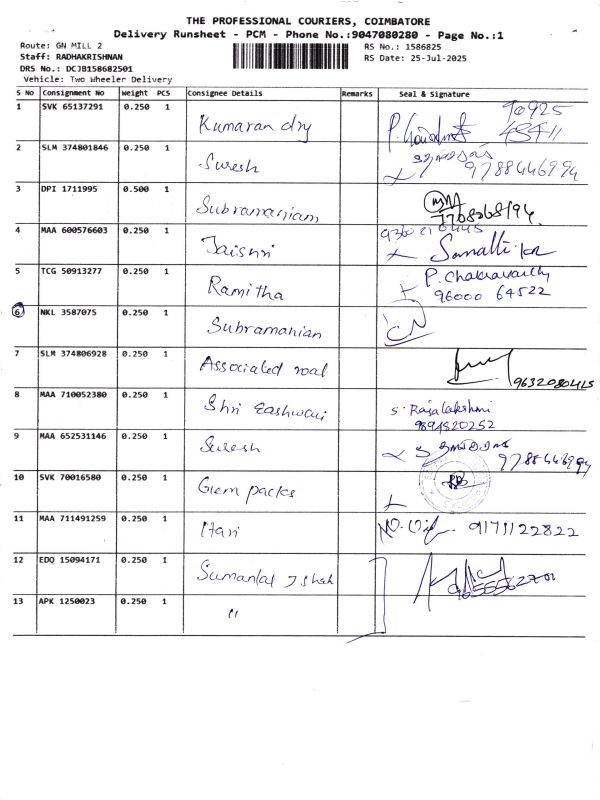 THE PROFESSIONAL COURIERS, COIMBATORE
Delivery Runsheet - PCM - Phone No.:9047080280 - Page No.:1
Route: GN MILL 2
RS No.: 1586825
Staff: RADHAKRISHNAN
RS Date: 25-Jul-2025
DRS No.: DCJB158682501
Vehicle: Two Wheeler Delivery
S No Consignment No Weight PCS Consignee Details Remarks Seal & Signature
1 SVK 65137291 0.250 1 Kumaran dry 90925
2 SLM 374801846 0.250 1 Suresh 9788446994
3 DPI 1711995 0.500 1 Subramaniam
4 MAA 600576603 0.250 1 Jaishri
5 TCG 50913277 0.250 1 Ramitha P. Chakravarthy
96000 64522
6 NKL 3587075 0.250 1 Subramanian
7 SLM 374806928 0.250 1 Associated roal
8 MAA 710052380 0.250 1 Shri Eashwari S. Rajalakshmi
9894820252
9 MAA 652531146 0.250 1 Suresh 9788446994
10 SVK 70016580 0.250 1 Gem packs
11 MAA 711491259 0.250 1 Hari 9171122822
12 EDQ 15094171 0.250 1 Sumanlal J Shah
13 APK 1250023 0.250 1 "